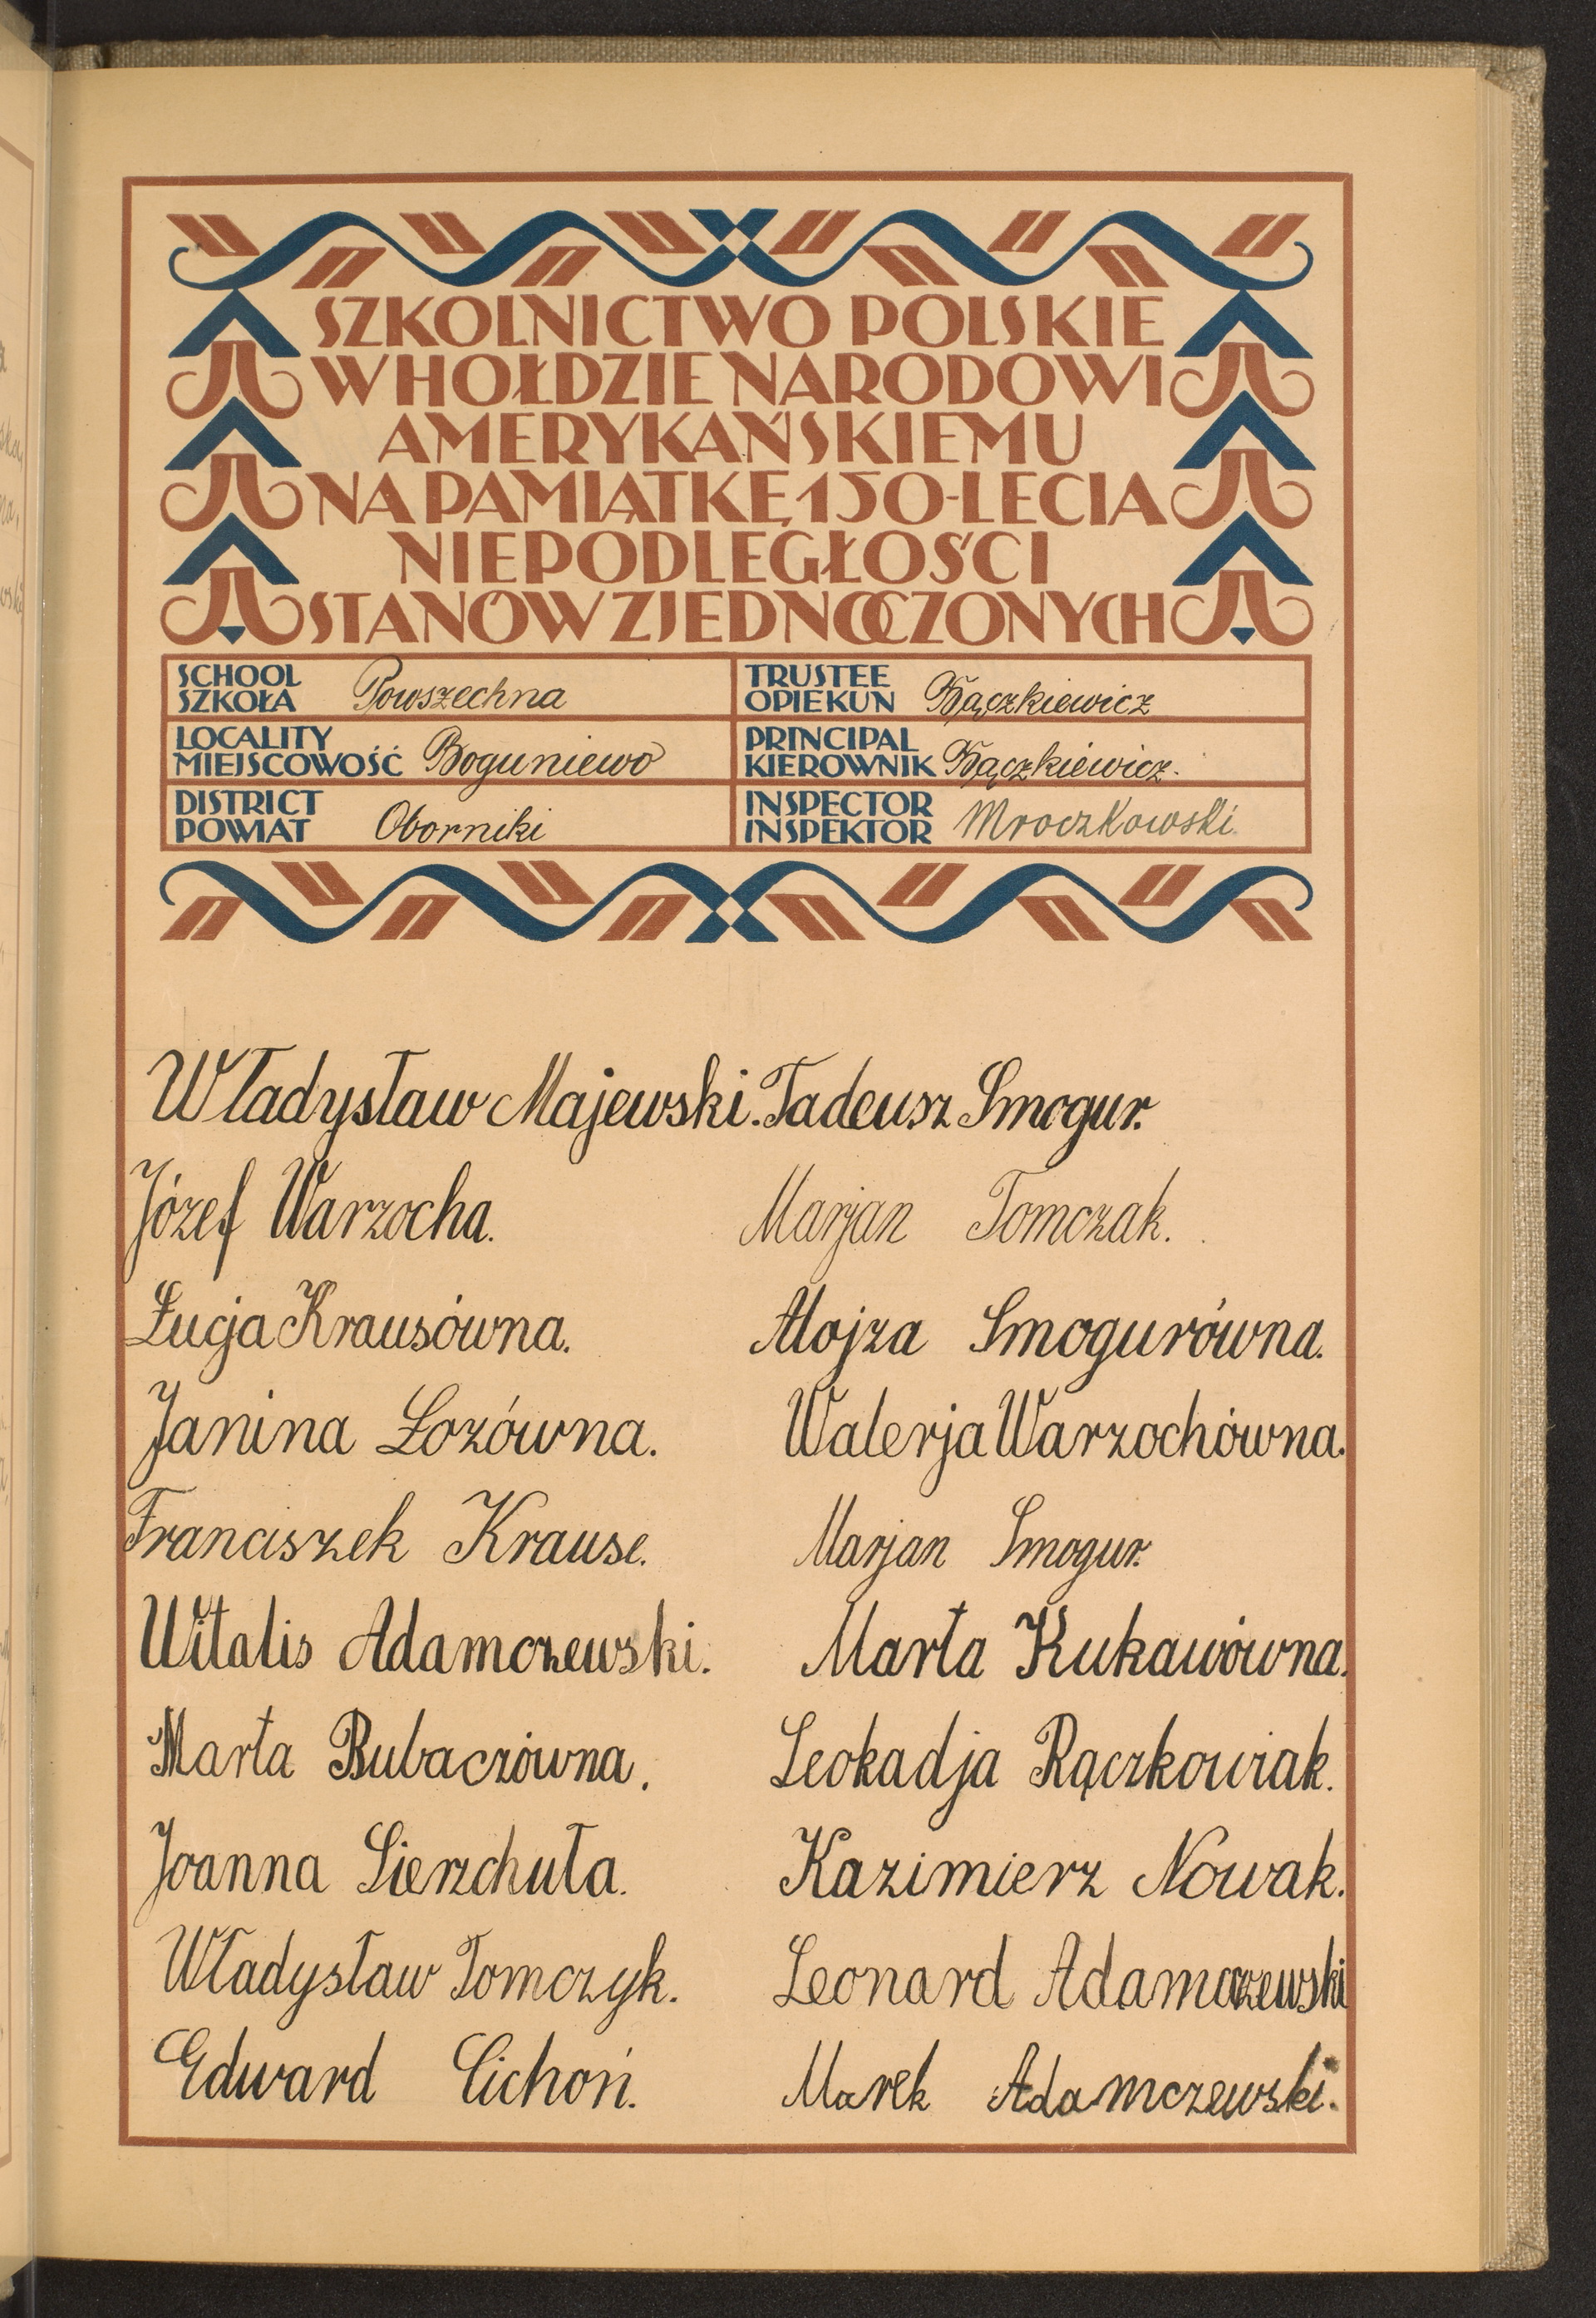 SZKOLNICTWO POLSKIE
W HOŁDZIE NARODOWI
AMERYKAŃSKIEMU
NA PAMIĄTKĘ 150-LECIA
NIEPODLEGŁOŚCI
STANÓW ZJEDNOCZONYCH
SCHOOL
SZKOŁA Powszechna
TRUSTEE
OPIEKUN Bączkiewicz
LOCALITY
MIEJSCOWOŚĆ Boguniewo
PRINCIPAL
KIEROWNIK Bączkiewicz.
DISTRICT
POWIAT Oborniki
INSPECTOR
INSPEKTOR Mroczkowski.
Władysław Majewski. Tadeusz Smogur.
Józef Warzocha. Marjan Tomczak.
Łucja Krausówna. Alojza Smogurówna.
Janina Łozówna. Walerja Warzochówna.
Franciszek Krause. Marjan Smogur.
Witalis Adamczewski. Marta Kukawówna.
Marta Bubaczówna. Leokadja Rączkowiak.
Joanna Sierzchuła. Kazimierz Nowak.
Władysław Tomczyk. Leonard Adamczewski
Edward Cichoń. Marek Adamczewski.